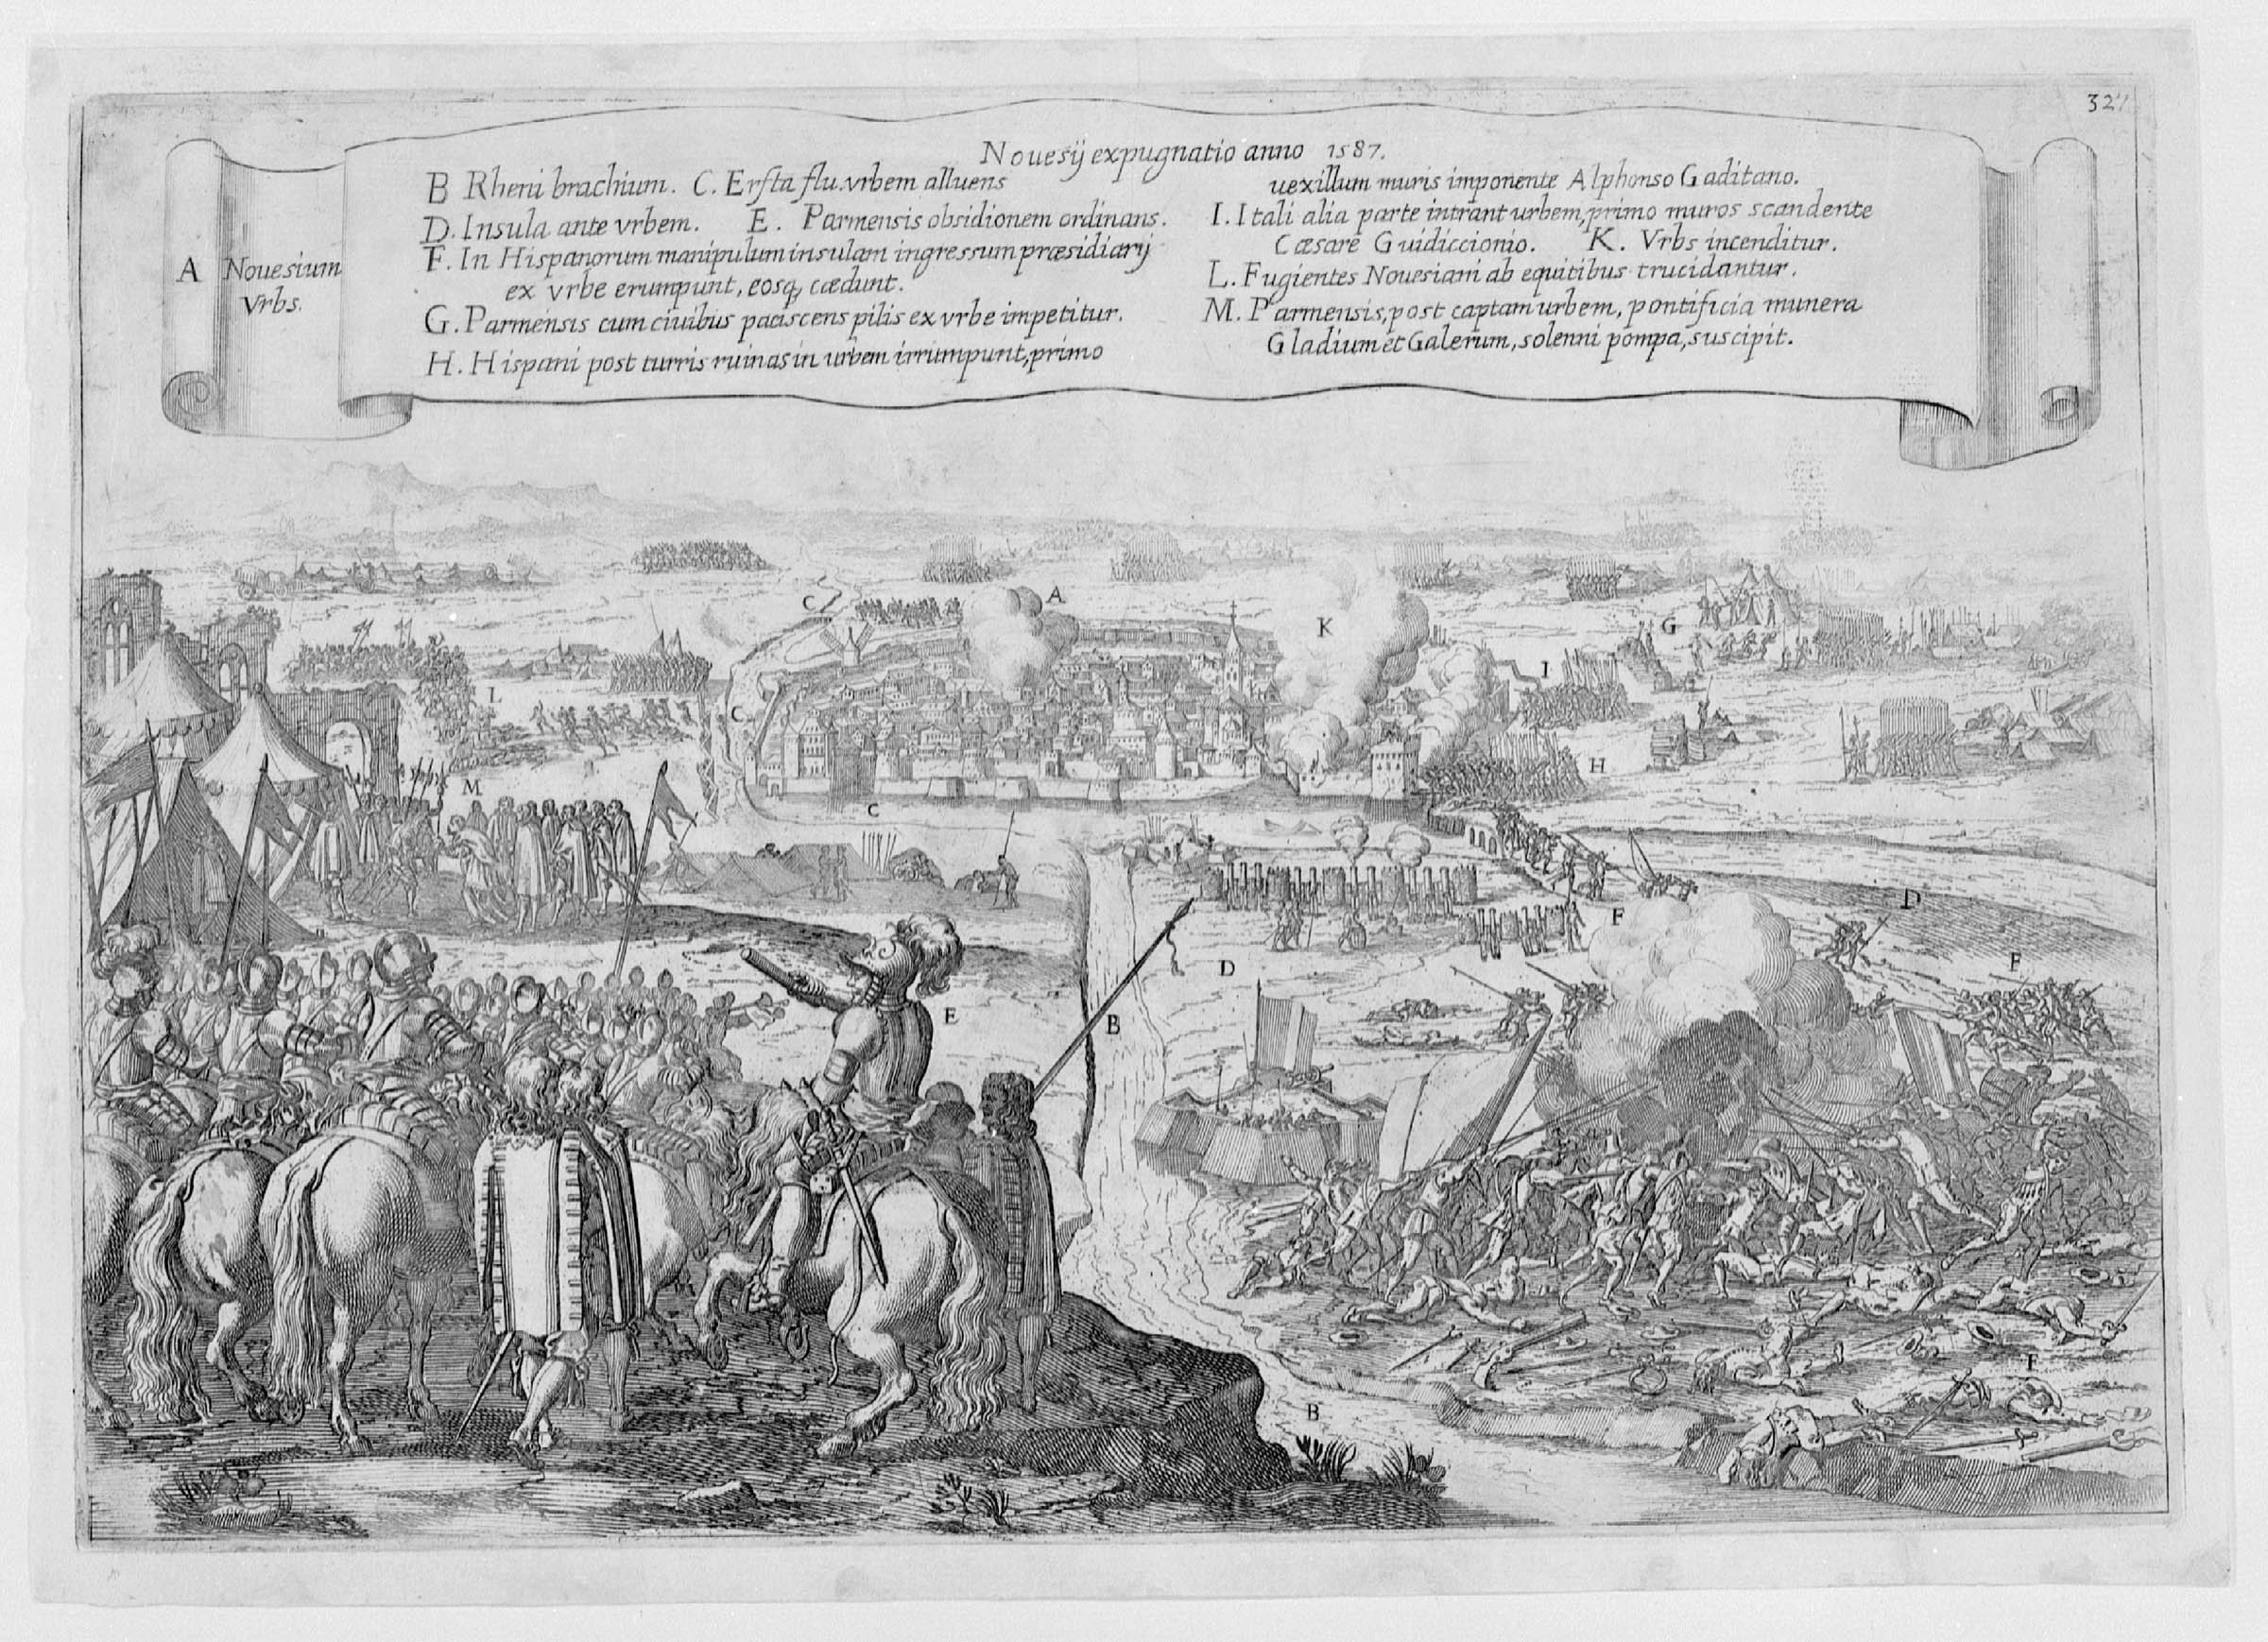 327
Nouesij expugnatio anno 1587.
A Nouesium
Vrbs.
B Rheni brachium. C. Ersta flu. vrbem alluens
D. Insula ante vrbem. E. Parmensis obsidionem ordinans.
F. In Hispanorum manipulum insulam ingressum præsidiarij
ex vrbe erumpunt, eosq, cædunt.
G. Parmensis cum ciuibus paciscens pilis ex vrbe impetitur.
H. Hispani post turris ruinas in urbem irrumpunt, primo
uexillum muris imponente Alphonso Gaditano.
I. Itali alia parte intrant urbem, primo muros scandente
Cæsare Guidiccionio. K. Vrbs incenditur.
L. Fugientes Nouesiani ab equitibus trucidantur.
M. Parmensis, post captam urbem, pontificia munera
Gladium et Galerum, solenni pompa, suscipit.
C
A
K
G
L
I
C
H
M
C
D
F
D
F
E
B
F
B